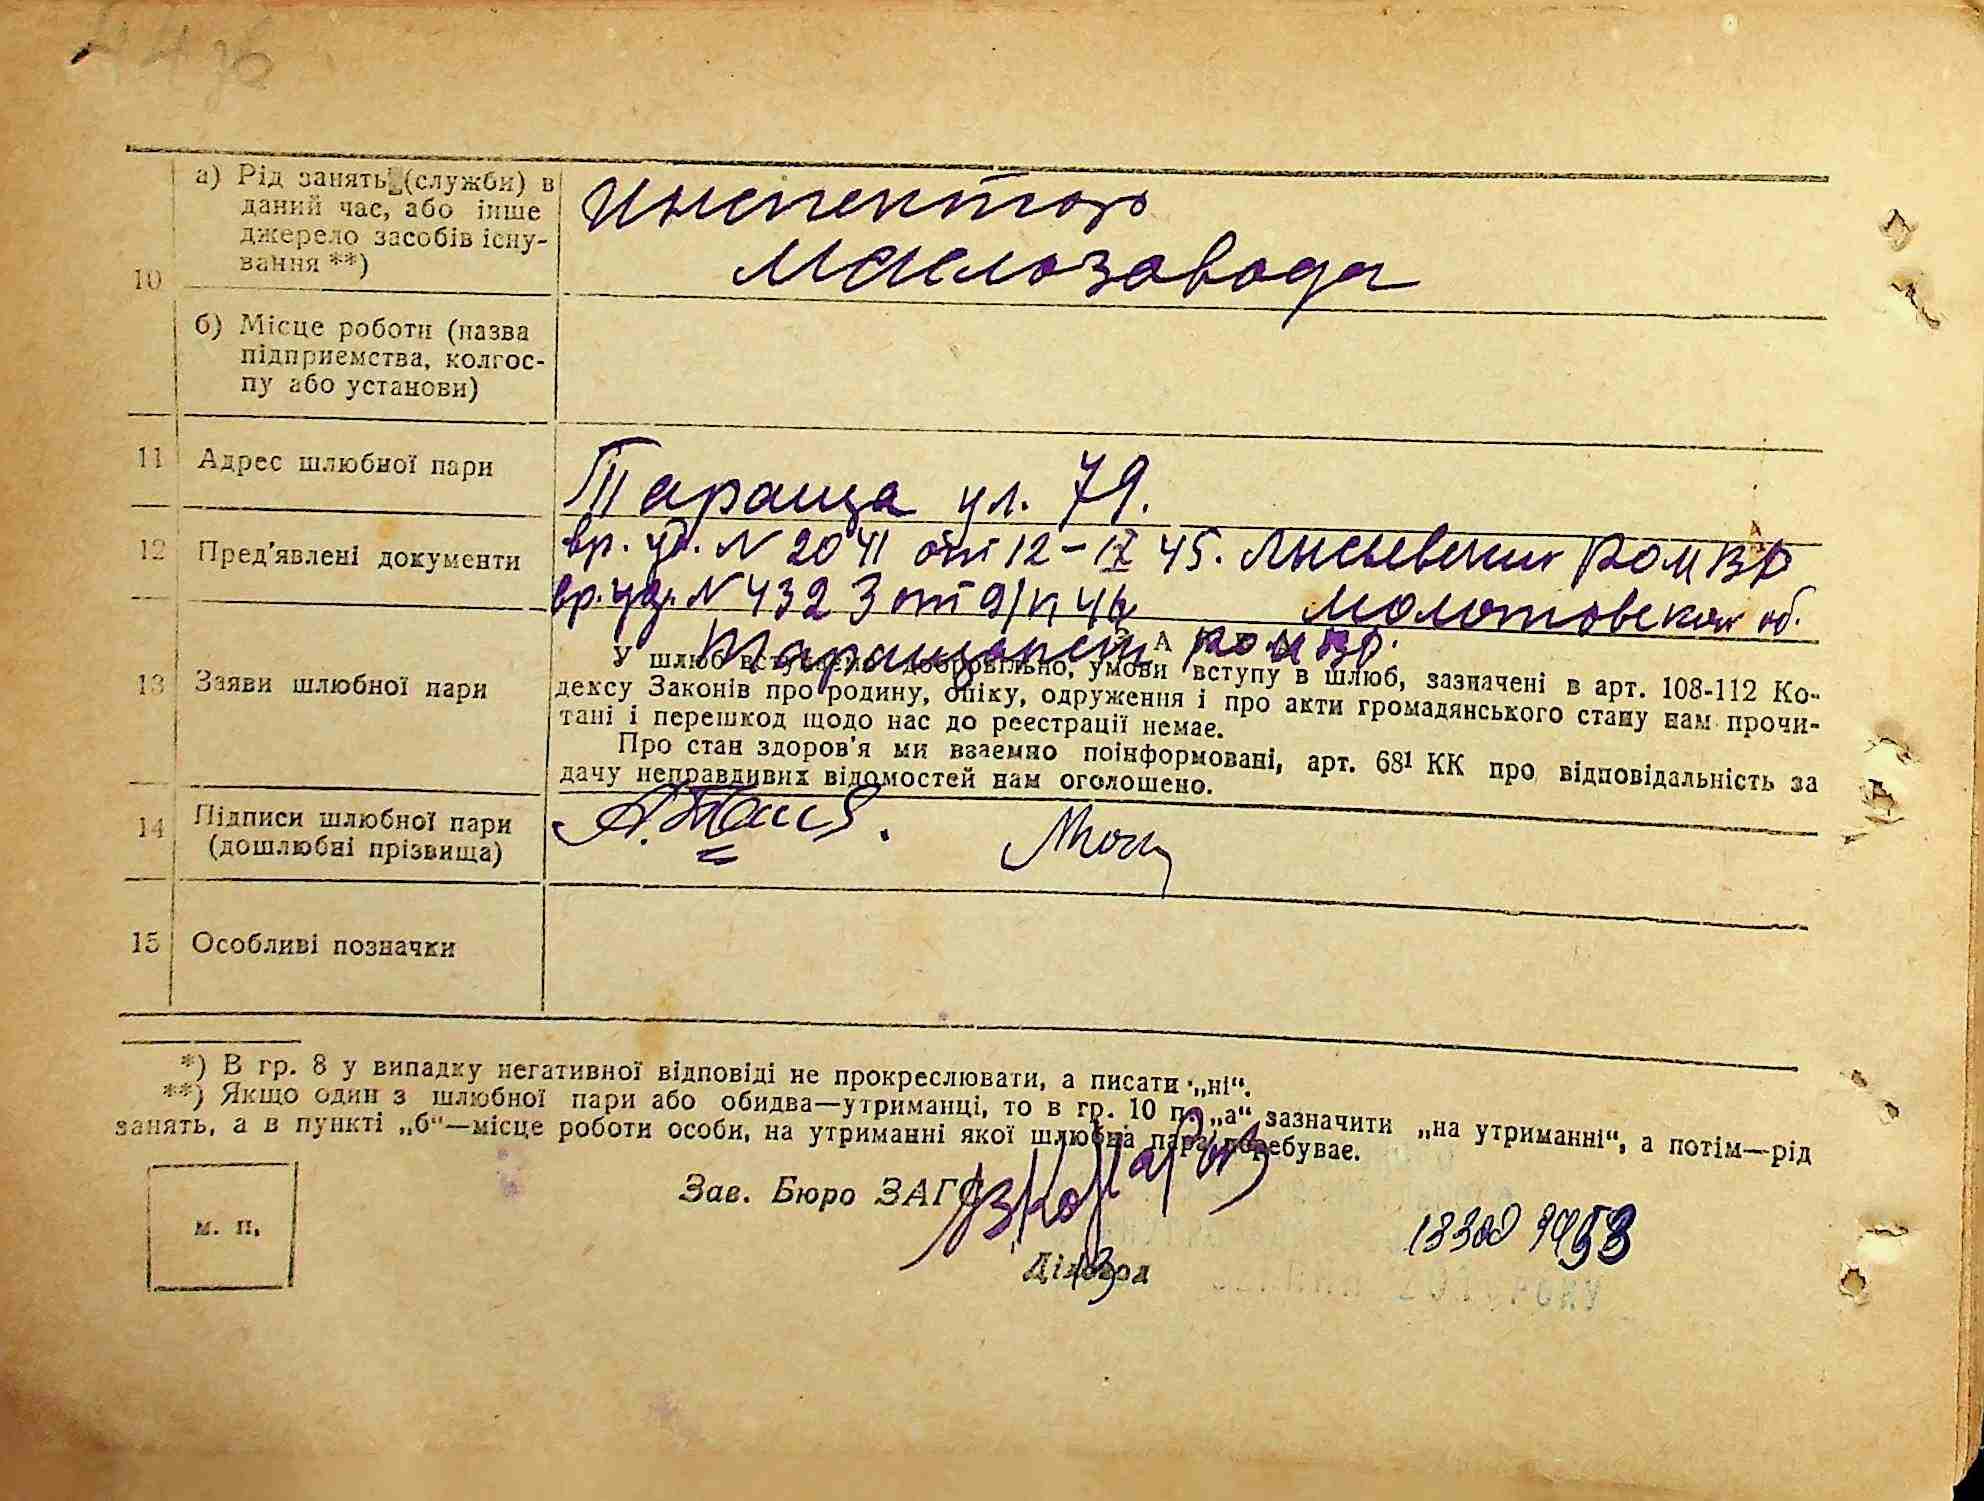 10
а) Рід занять (служби) в
даний час, або інше
джерело засобів існу-
вання **)
Инспектор
Маслозавода
б) Місце роботи (назва
підприємства, колгос-
пу або установи)
11 Адрес шлюбної пари
Тараща ул. 79.
12 Пред'явлені документи
вр. уд. N 2041 от 12-IX 45. Лысьвенским РОМ ВД
вр. уд. N 4323 от Молотовской об.
Таращанским РОМ ВД.
13 Заяви шлюбної пари
У шлюб вступаємо добровільно, умови вступу в шлюб, зазначені в арт. 108-112 Ко-
дексу Законів про родину, опіку, одруження і про акти громадянського стану нам прочи-
тані і перешкод щодо нас до реєстрації немає.
Про стан здоров'я ми взаємно поінформовані, арт. 68¹ КК про відповідальність за
дачу неправдивих відомостей нам оголошено.
14 Підписи шлюбної пари
(дошлюбні прізвища)
15 Особливі позначки
*) В гр. 8 у випадку негативної відповіді не прокреслювати, а писати „ні“.
**) Якщо один з шлюбної пари або обидва—утриманці, то в гр. 10 п. „а“ зазначити „на утриманні“, а потім—рід
занять, а в пункті „б“—місце роботи особи, на утриманні якої шлюбна пара перебуває.
Зав. Бюро ЗАГС
м. п.
Діловод